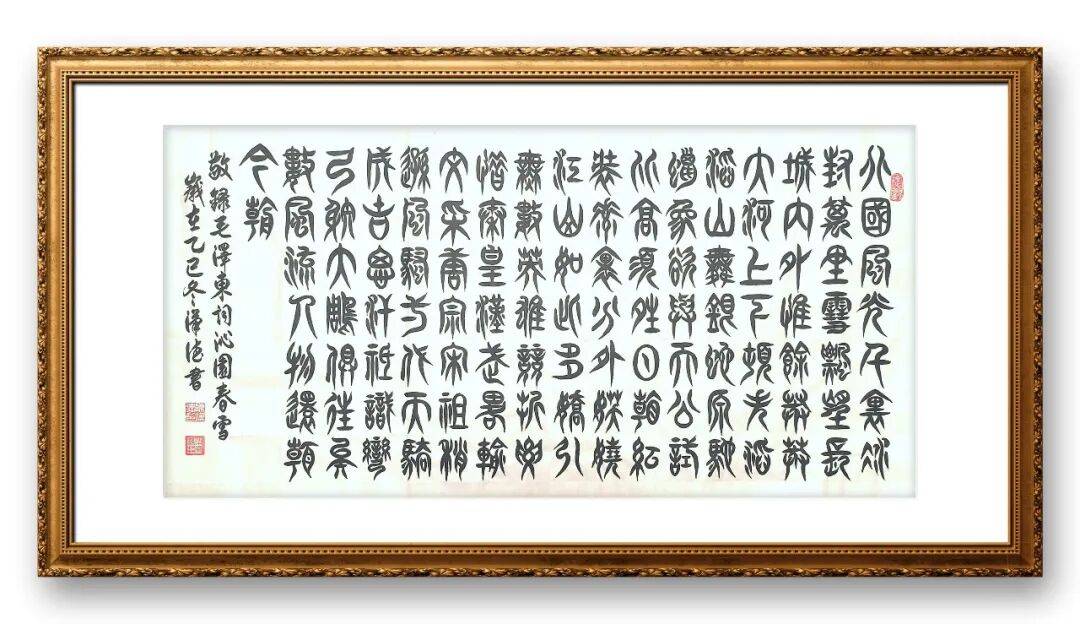 北國風光千里冰
封萬里雪飄望長
城內外惟餘莽莽
大河上下頓失滔
滔山舞銀蛇原馳
蠟象欲與天公試
比高須晴日看紅
裝素裹分外妖嬈
江山如此多嬌引
無數英雄競折腰
惜秦皇漢武略輸
文采唐宗宋祖稍
遜風騷一代天驕
成吉思汗祇識彎
弓射大鵰俱往矣
數風流人物還看
今朝
敬録毛澤東詞沁園春雪
歲在乙巳冬書